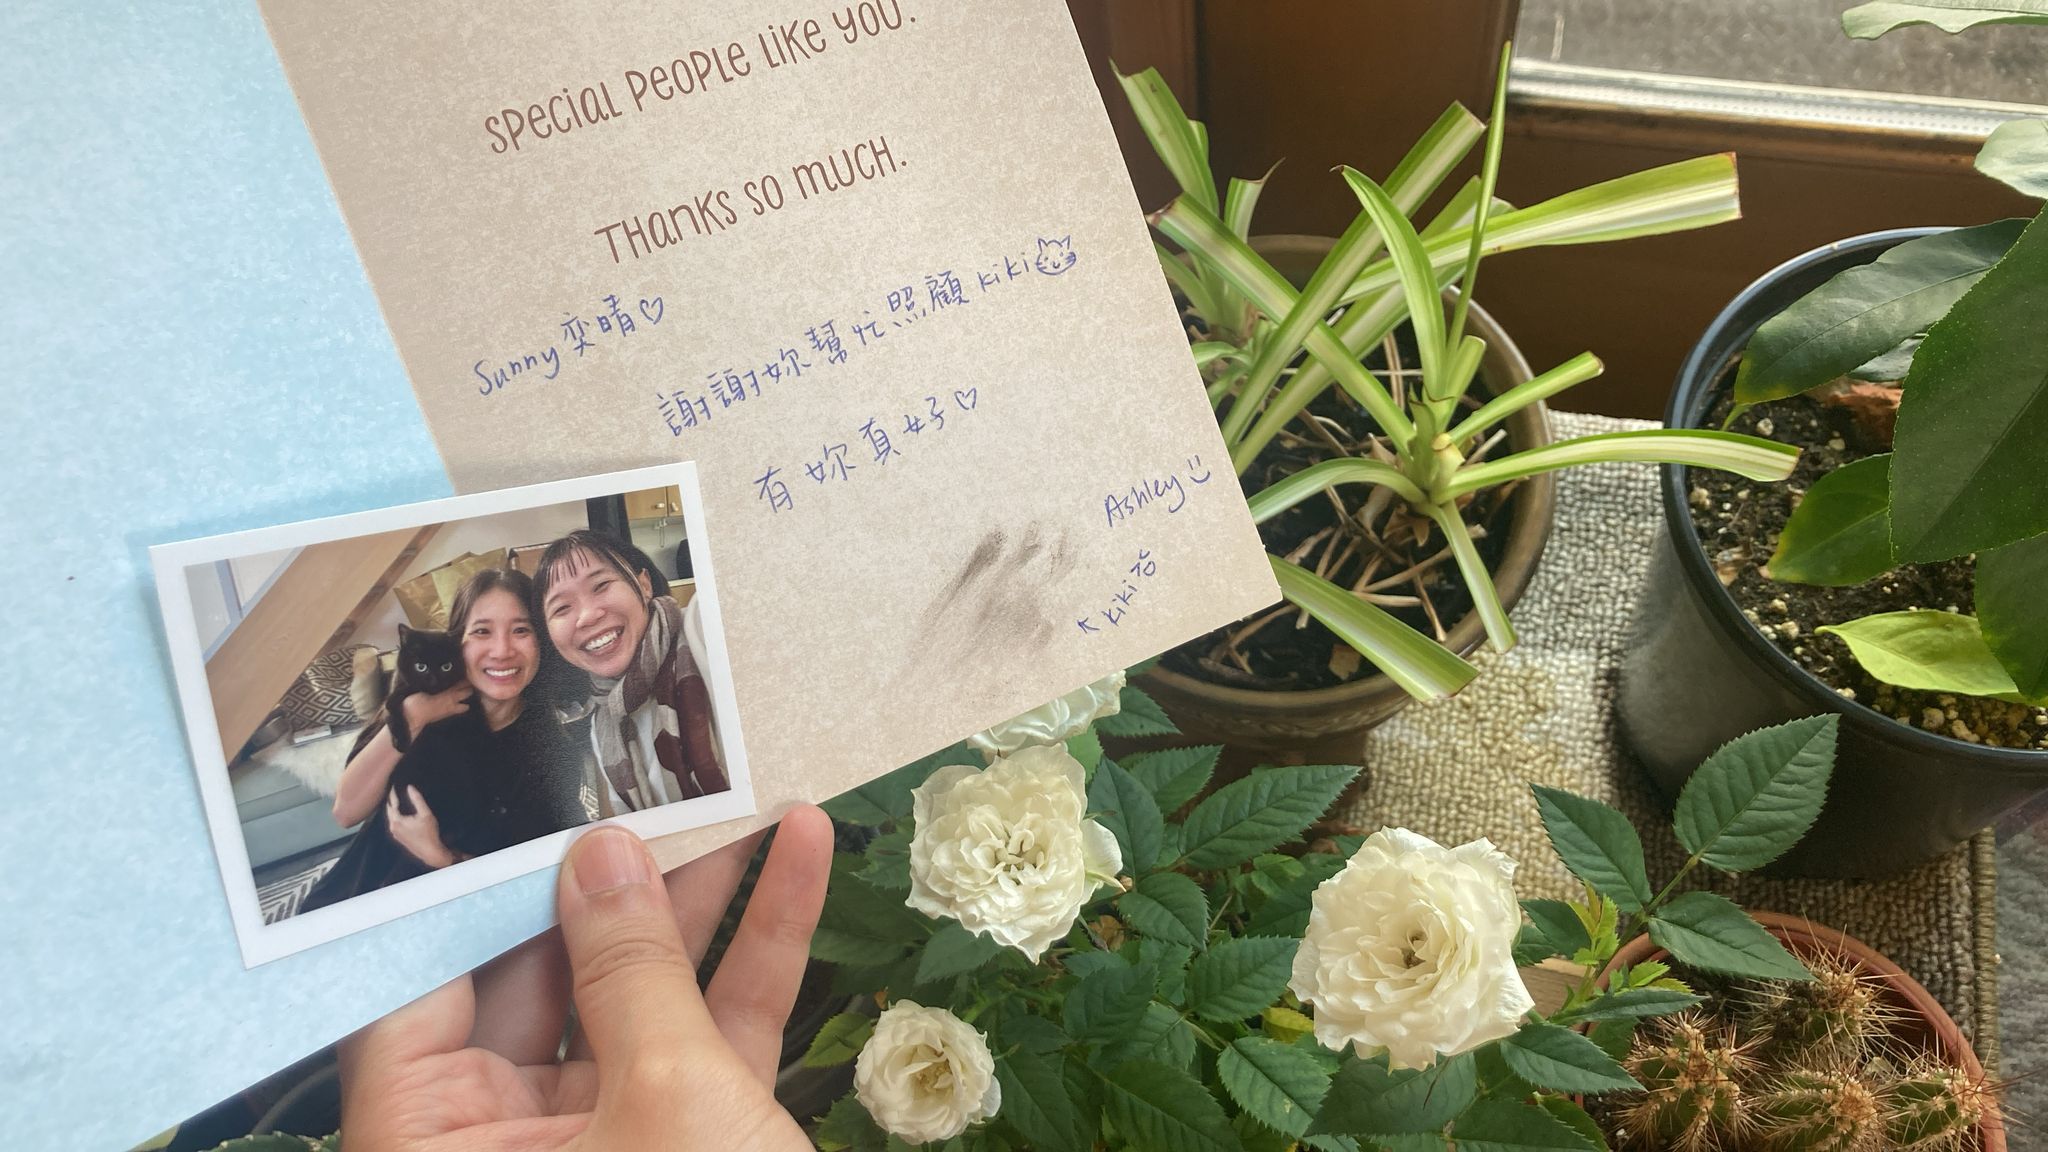 SPECIAL PEOPLE LIKE YOU.
THANKS SO MUCH.
Sunny 奕晴♡
謝謝妳幫忙照顧 kiki
有妳真好♡
Ashley
↖ kiki